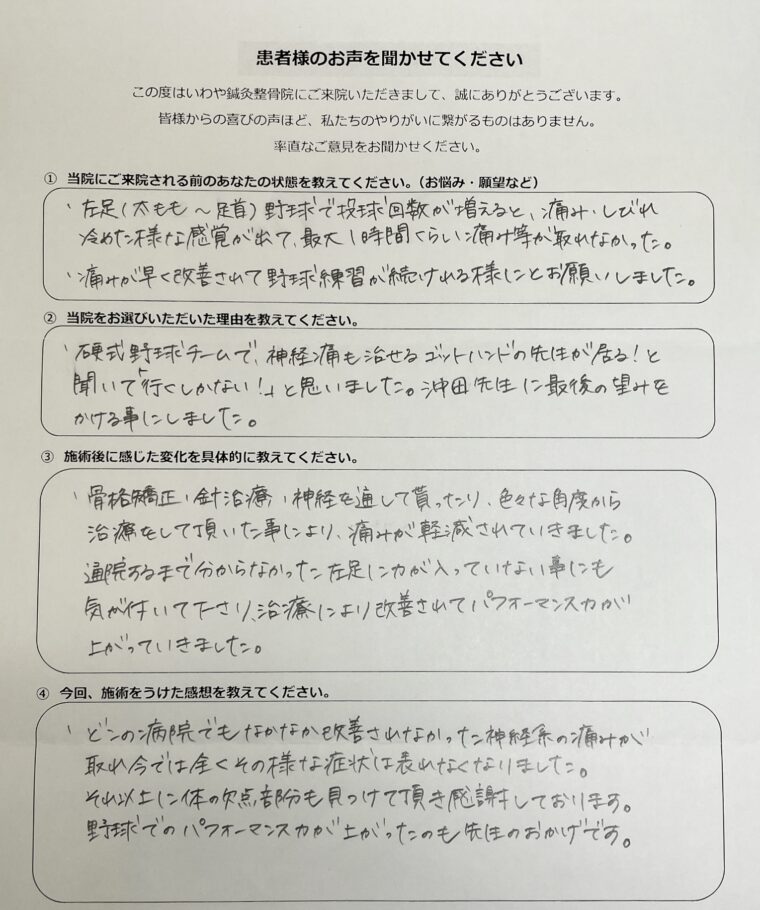 患者様のお声を聞かせてください
この度はいわや鍼灸整骨院にご来院いただきまして、誠にありがとうございます。
皆様からの喜びの声ほど、私たちのやりがいに繋がるものはありません。
率直なご意見をお聞かせください。
① 当院にご来院される前のあなたの状態を教えてください。(お悩み・願望など)
・左足(太もも〜足首)野球で投球回数が増えると、痛み・しびれ
冷めた様な感覚が出て、最大1時間くらい痛み等が取れなかった。
・痛みが早く改善されて野球練習が続けれる様にとお願いしました。
② 当院をお選びいただいた理由を教えてください。
・硬式野球チームで、神経痛も治せるゴットハンドの先生が居る!と
聞いて「行くしかない!」と思いました。沖田先生に最後の望みを
かける事にしました。
③ 施術後に感じた変化を具体的に教えてください。
・骨格矯正、針治療、神経を通して貰ったり、色々な角度から
治療をして頂いた事により、痛みが軽減されていきました。
通院するまで分からなかった左足に力が入っていない事にも
気が付いて下さり、治療により改善されてパフォーマンス力が
上がっていきました。
④ 今回、施術をうけた感想を教えてください。
・どこの病院でもなかなか改善されなかった神経系の痛みが
取れ今では全くその様な症状は表れなくなりました。
それ以上に体の欠点部分も見つけて頂き感謝しております。
野球でのパフォーマンス力が上がったのも先生のおかげです。